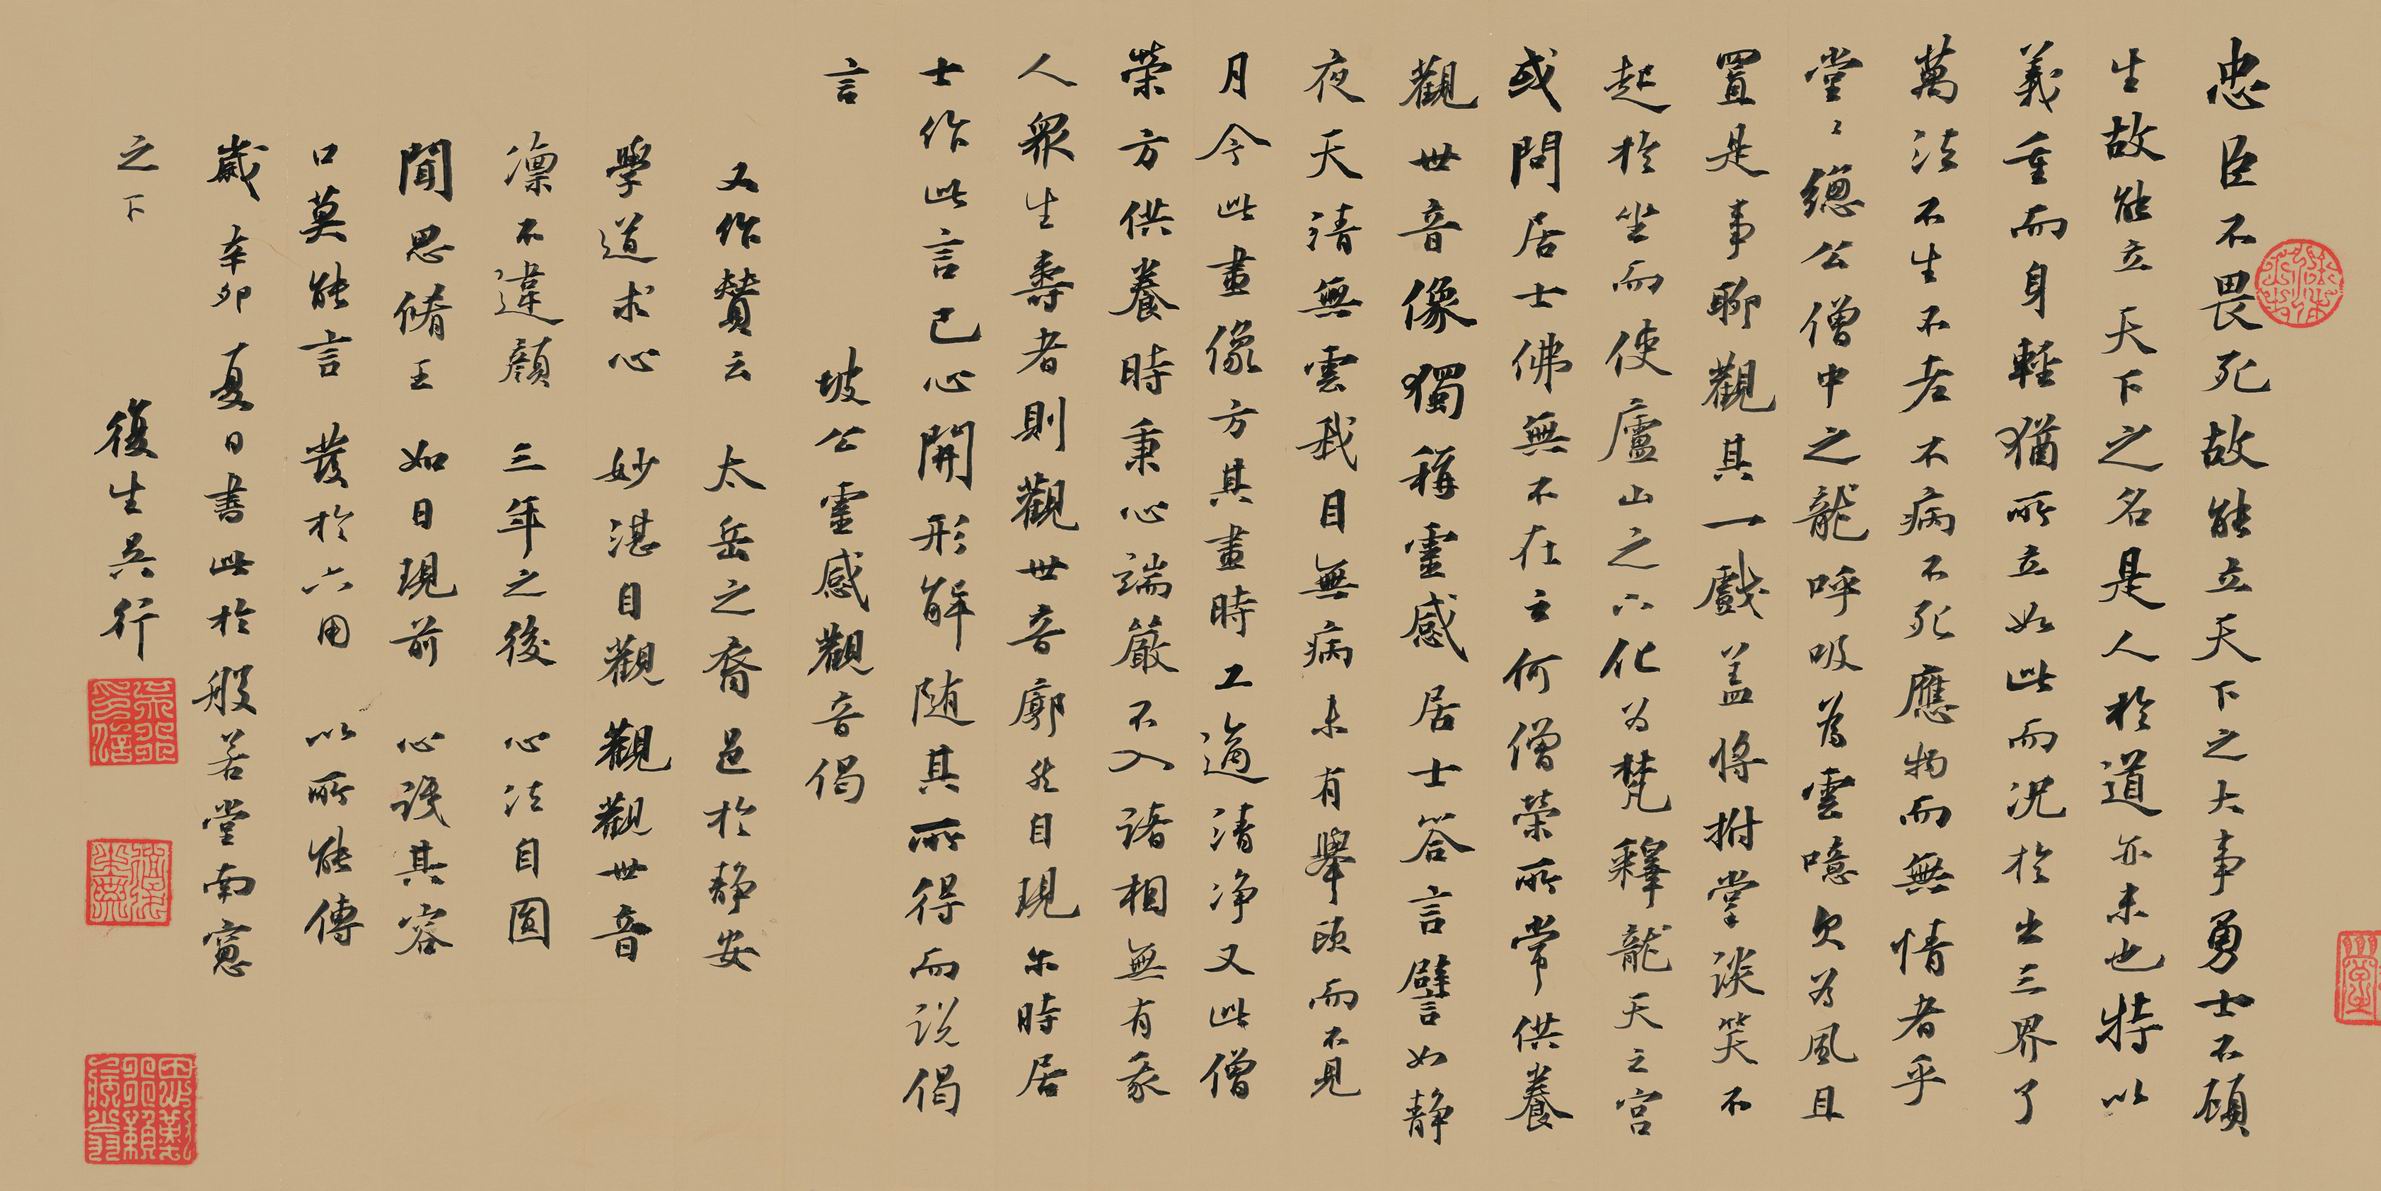 忠臣不畏死故能立天下之大事勇士不顧
生故能立天下之名是人於道亦未也特以
義重而身輕猶所立如此而況於出三界了
萬法不生不老不病不死應物而無情者乎
堂〻總公僧中之龍呼吸為雲噫欠為風且
置是事聊觀其一戲蓋將拊掌談笑不
起於坐而使廬山之下化為梵釋龍天之宮
或問居士佛無不在云何僧榮所常供養
觀世音像獨稱靈感居士答言譬如静
夜天清無雲我目無病未有舉頭而不見
月今此畫像方其畫時工適清净又此僧
榮方供養時秉心端嚴不入諸相無有衆
人衆生壽者則觀世音廓然自現尔時居
士作此言已心開形解随其所得而説偈
言
坡公靈感觀音偈
又作贊云 太岳之裔邑於静安
學道求心 妙湛自觀觀觀世音
凛不違顔 三年之後 心法自圓
聞思脩王 如日現前 心識其容
口莫能言 發於六用 以所能傳
歲辛卯夏日書此於般若堂南窻
之下
復生吳行